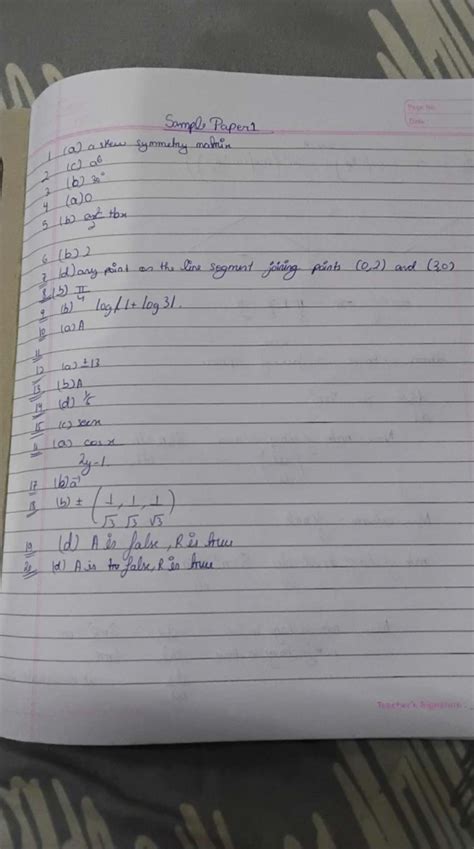 Page No.
Date
Sample Paper 1
1 (a) a skew symmetry matrix
2 (c) a⁶
3 (b) 30°
4 (a) 0
5 (b) ax²/2 + bx
6 (b) 2
7 (d) any point on the line segment joining points (0,2) and (3,0)
8 (b) π/4
9 (b) log|1 + log 3|.
10 (a) A
11
12 (a) ±13
13 (b) A
14 (d) 1/6
15 (c) secx
(a) cosx
2y-1
17 (b) a⃗
18 (b) ± (1/√3, 1/√3, 1/√3)
19 (d) A is false, R is true
20 (d) A is false, R is true
Signature